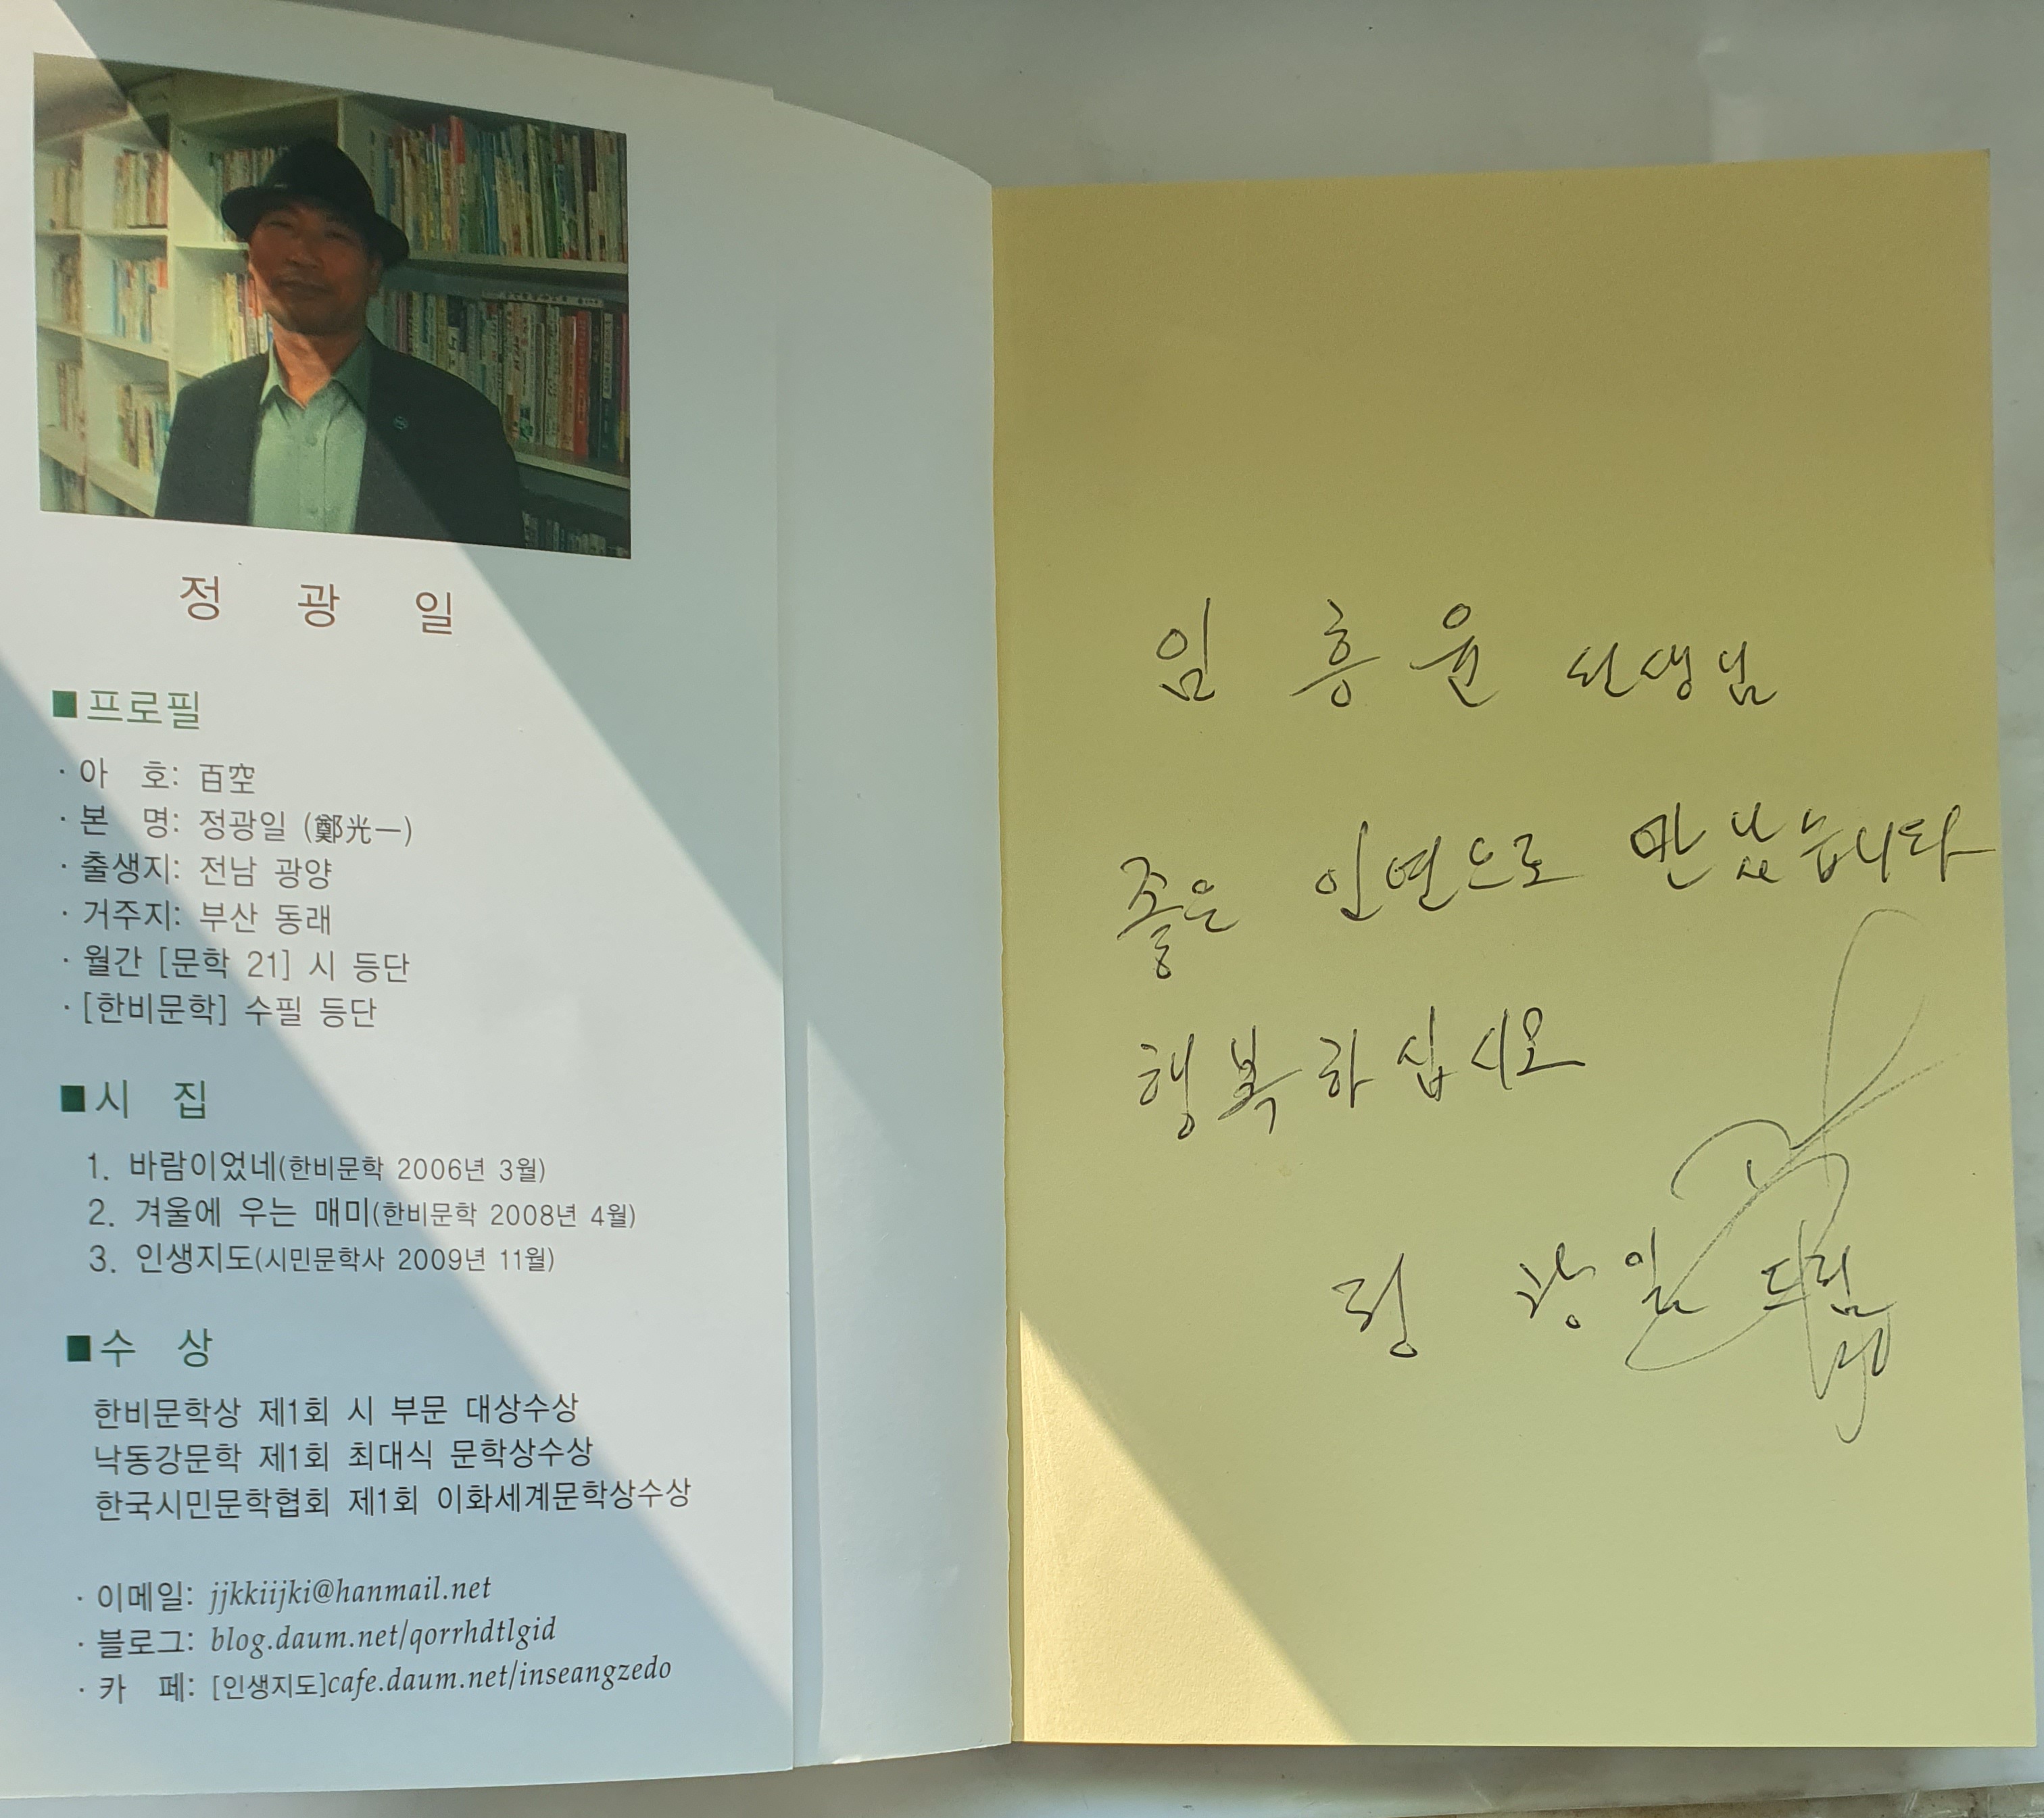 정 광 일
■ 프로필
· 아 호: 百空
· 본 명: 정광일 (鄭光一)
· 출생지: 전남 광양
· 거주지: 부산 동래
· 월간 [문학 21] 시 등단
· [한비문학] 수필 등단
■ 시 집
1. 바람이었네(한비문학 2006년 3월)
2. 겨울에 우는 매미(한비문학 2008년 4월)
3. 인생지도(시민문학사 2009년 11월)
■ 수 상
한비문학상 제1회 시 부문 대상수상
낙동강문학 제1회 최대식 문학상수상
한국시민문학협회 제1회 이화세계문학상수상
· 이메일: jjkkiijki@hanmail.net
· 블로그: blog.daum.net/qorrhdtlgid
· 카 페: [인생지도]cafe.daum.net/inseangzedo
임 흥 윤 선생님
좋은 인연으로 만났습니다
행복하십시오
정 광 일 드림